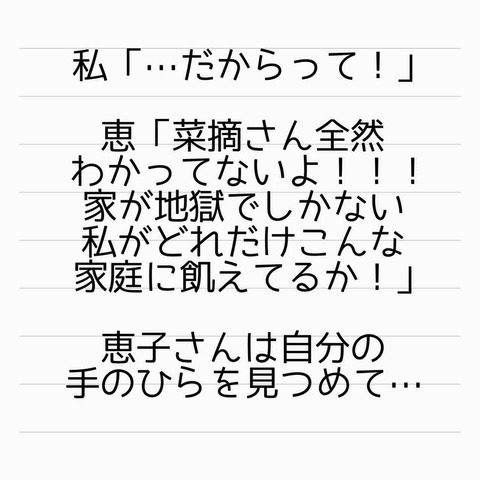 私「…だからって！」
恵「菜摘さん全然
わかってないよ！！！
家が地獄でしかない
私がどれだけこんな
家庭に飢えてるか！」
恵子さんは自分の
手のひらを見つめて…